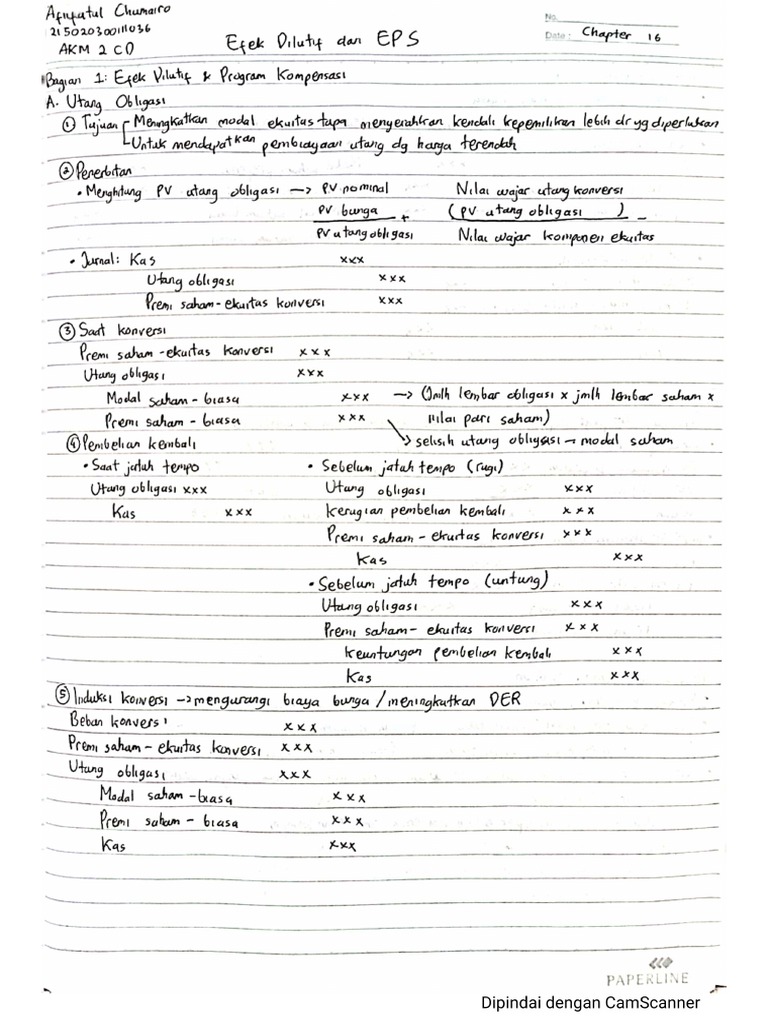 Afifatul Chumairo
No.
215020300111036
Date: Chapter 16
AKM 2 CD
Efek Dilutif dan EPS
Bagian 1: Efek Dilutif & Program Kompensasi
A. Utang Obligasi
① Tujuan Meningkatkan modal ekuitas tapa menyerahkan kendali kepemilikan lebih dr yg diperlukan
Untuk mendapatkan pembiayaan utang dg harga terendah
② Penerbitan
• Menghitung PV utang obligasi → PV nominal Nilai wajar utang konversi
PV bunga + (PV utang obligasi) -
PV utang obligasi Nilai wajar komponen ekuitas
• Jurnal: Kas xxx
Utang obligasi xxx
Premi saham-ekuitas konversi xxx
③ Saat konversi
Premi saham-ekuitas konversi xxx
Utang obligasi xxx
Modal saham-biasa xxx → (Jmlh lembar obligasi x jmlh lembar saham x
Premi saham-biasa xxx nilai pari saham)
④ Pembelian kembali → selisih utang obligasi - modal saham
• Saat jatuh tempo • Sebelum jatuh tempo (rugi)
Utang obligasi xxx Utang obligasi xxx
Kas xxx Kerugian pembelian kembali xxx
Premi saham-ekuitas konversi xxx
Kas xxx
• Sebelum jatuh tempo (untung)
Utang obligasi xxx
Premi saham-ekuitas konversi xxx
Keuntungan pembelian kembali xxx
Kas xxx
⑤ Induksi konversi → mengurangi biaya bunga / meningkatkan DER
Beban konversi xxx
Premi saham-ekuitas konversi xxx
Utang obligasi xxx
Modal saham-biasa xxx
Premi saham-biasa xxx
Kas xxx
PAPERLINE
Dipindai dengan CamScanner